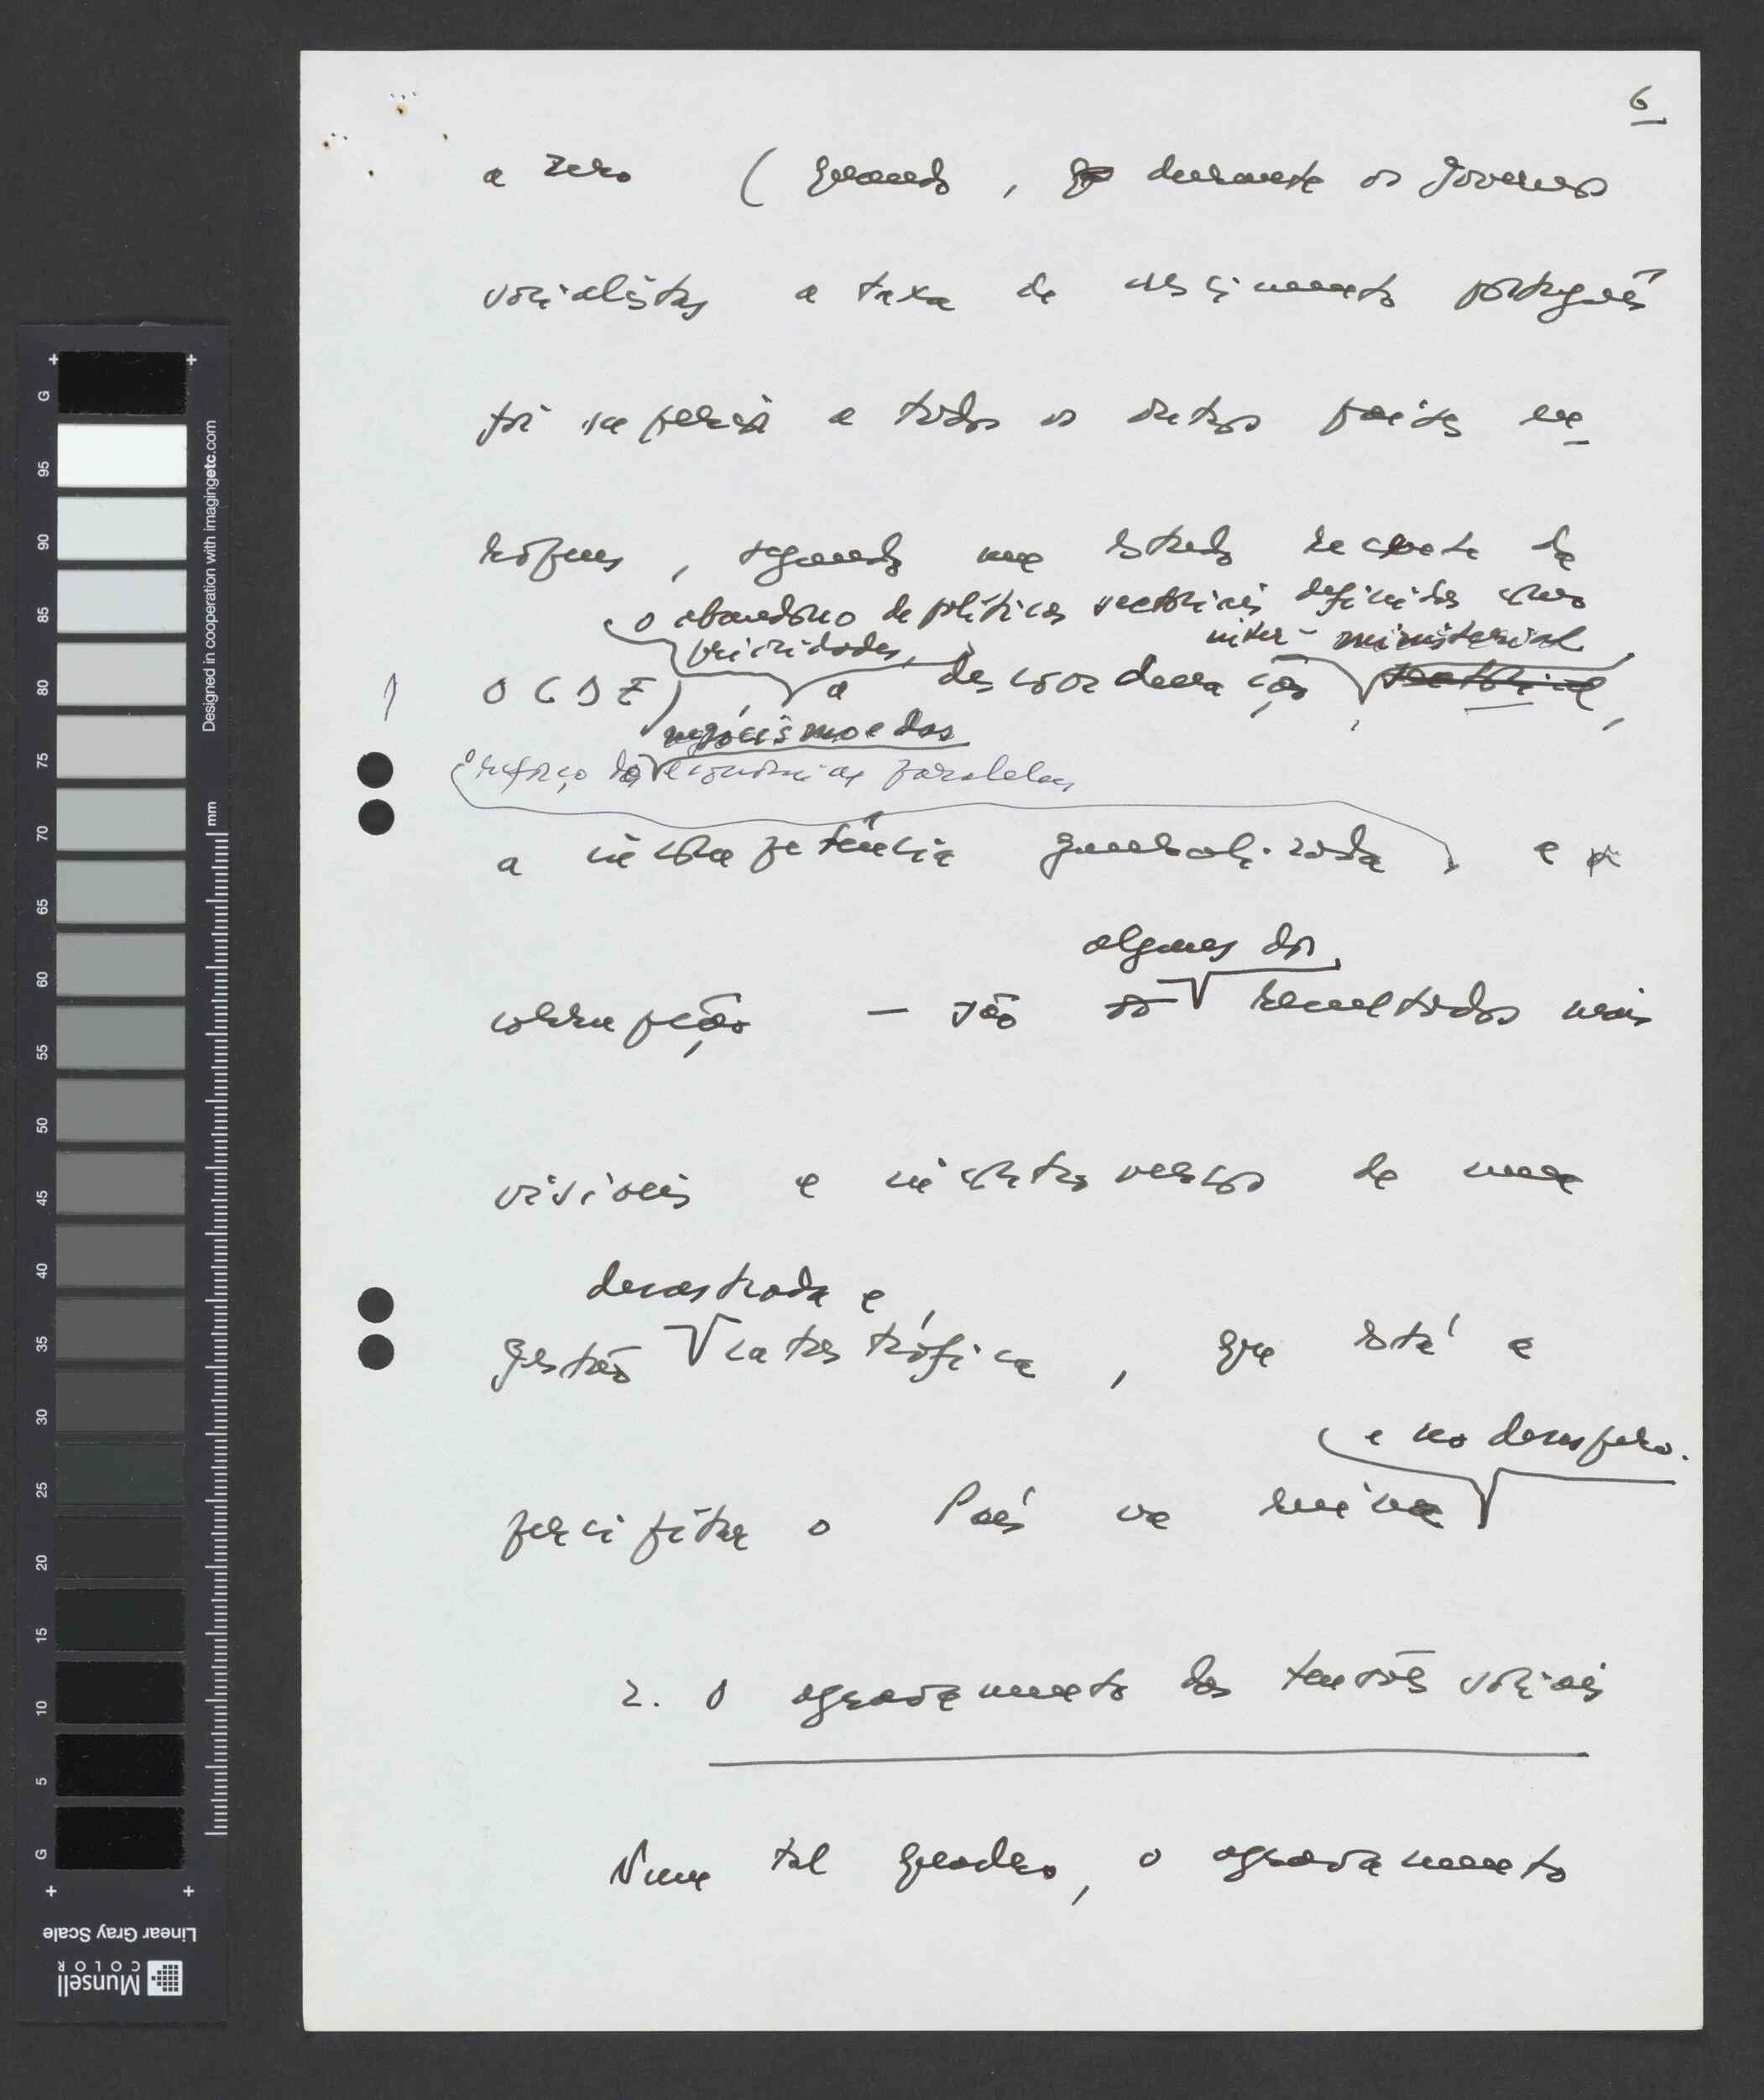 6
a zero (quando, durante os Governos
socialistas a taxa de crescimento português
foi superior a todos os outros países eu-
ropeus, segundo um estudo recente da
o abandono de políticas sectoriais definidas como
prioridades,
inter-ministerial,
OCDE), a descoordenação sectorial,
negocismo e das
o reforço da economias paralelas
a incompetência generalizada, e a
alguns dos
corrupção — são os resultados mais
visíveis e incontroversos de uma
desastrada e
gestão catastrófica, que está a
e no desespero.
precipitar o País na ruína
2. O agravamento das tensões sociais
Num tal quadro, o agravamento
G
95
90
85
80
75
70
65
60
55
50
45
40
35
30
25
20
15
10
5
G
mm
Designed in cooperation with imagingetc.com
Linear Gray Scale
Munsell
COLOR